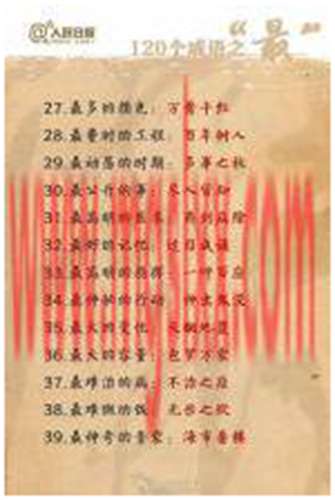 @人民日报
120个成语之“最”
27.最多的颜色：万紫千红
28.最费时的工程：百年树人
29.最动荡的时期：多事之秋
30.最公开的事：尽人皆知
31.最高明的医术：药到病除
32.最好的记忆：过目成诵
33.最高明的指挥：一呼百应
34.最神秘的行动：神出鬼没
35.最大的变化：天翻地覆
36.最大的容量：包罗万象
37.最难治的病：不治之症
38.最难做的饭：无米之炊
39.最神奇的景象：海市蜃楼